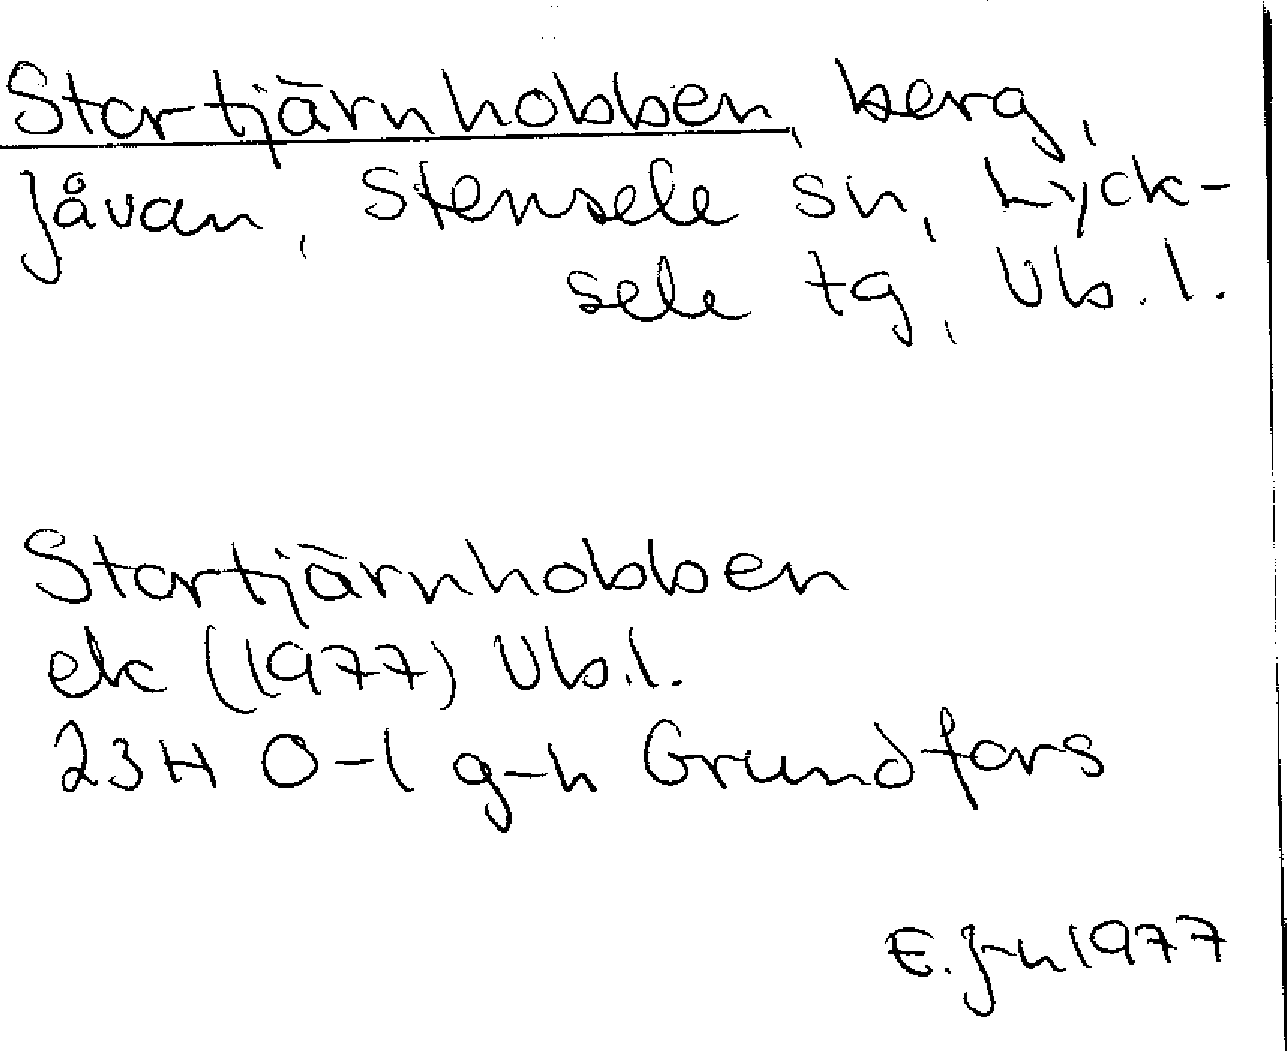 Stortjärnhobben, berg,
Jåvan, Stensele sn, Lyck-
sele tg, Vb.l.
Stortjärnhobben
ek (1977) Vb.l.
23H 0-1 g-h Grundfors
E. J-n 1977